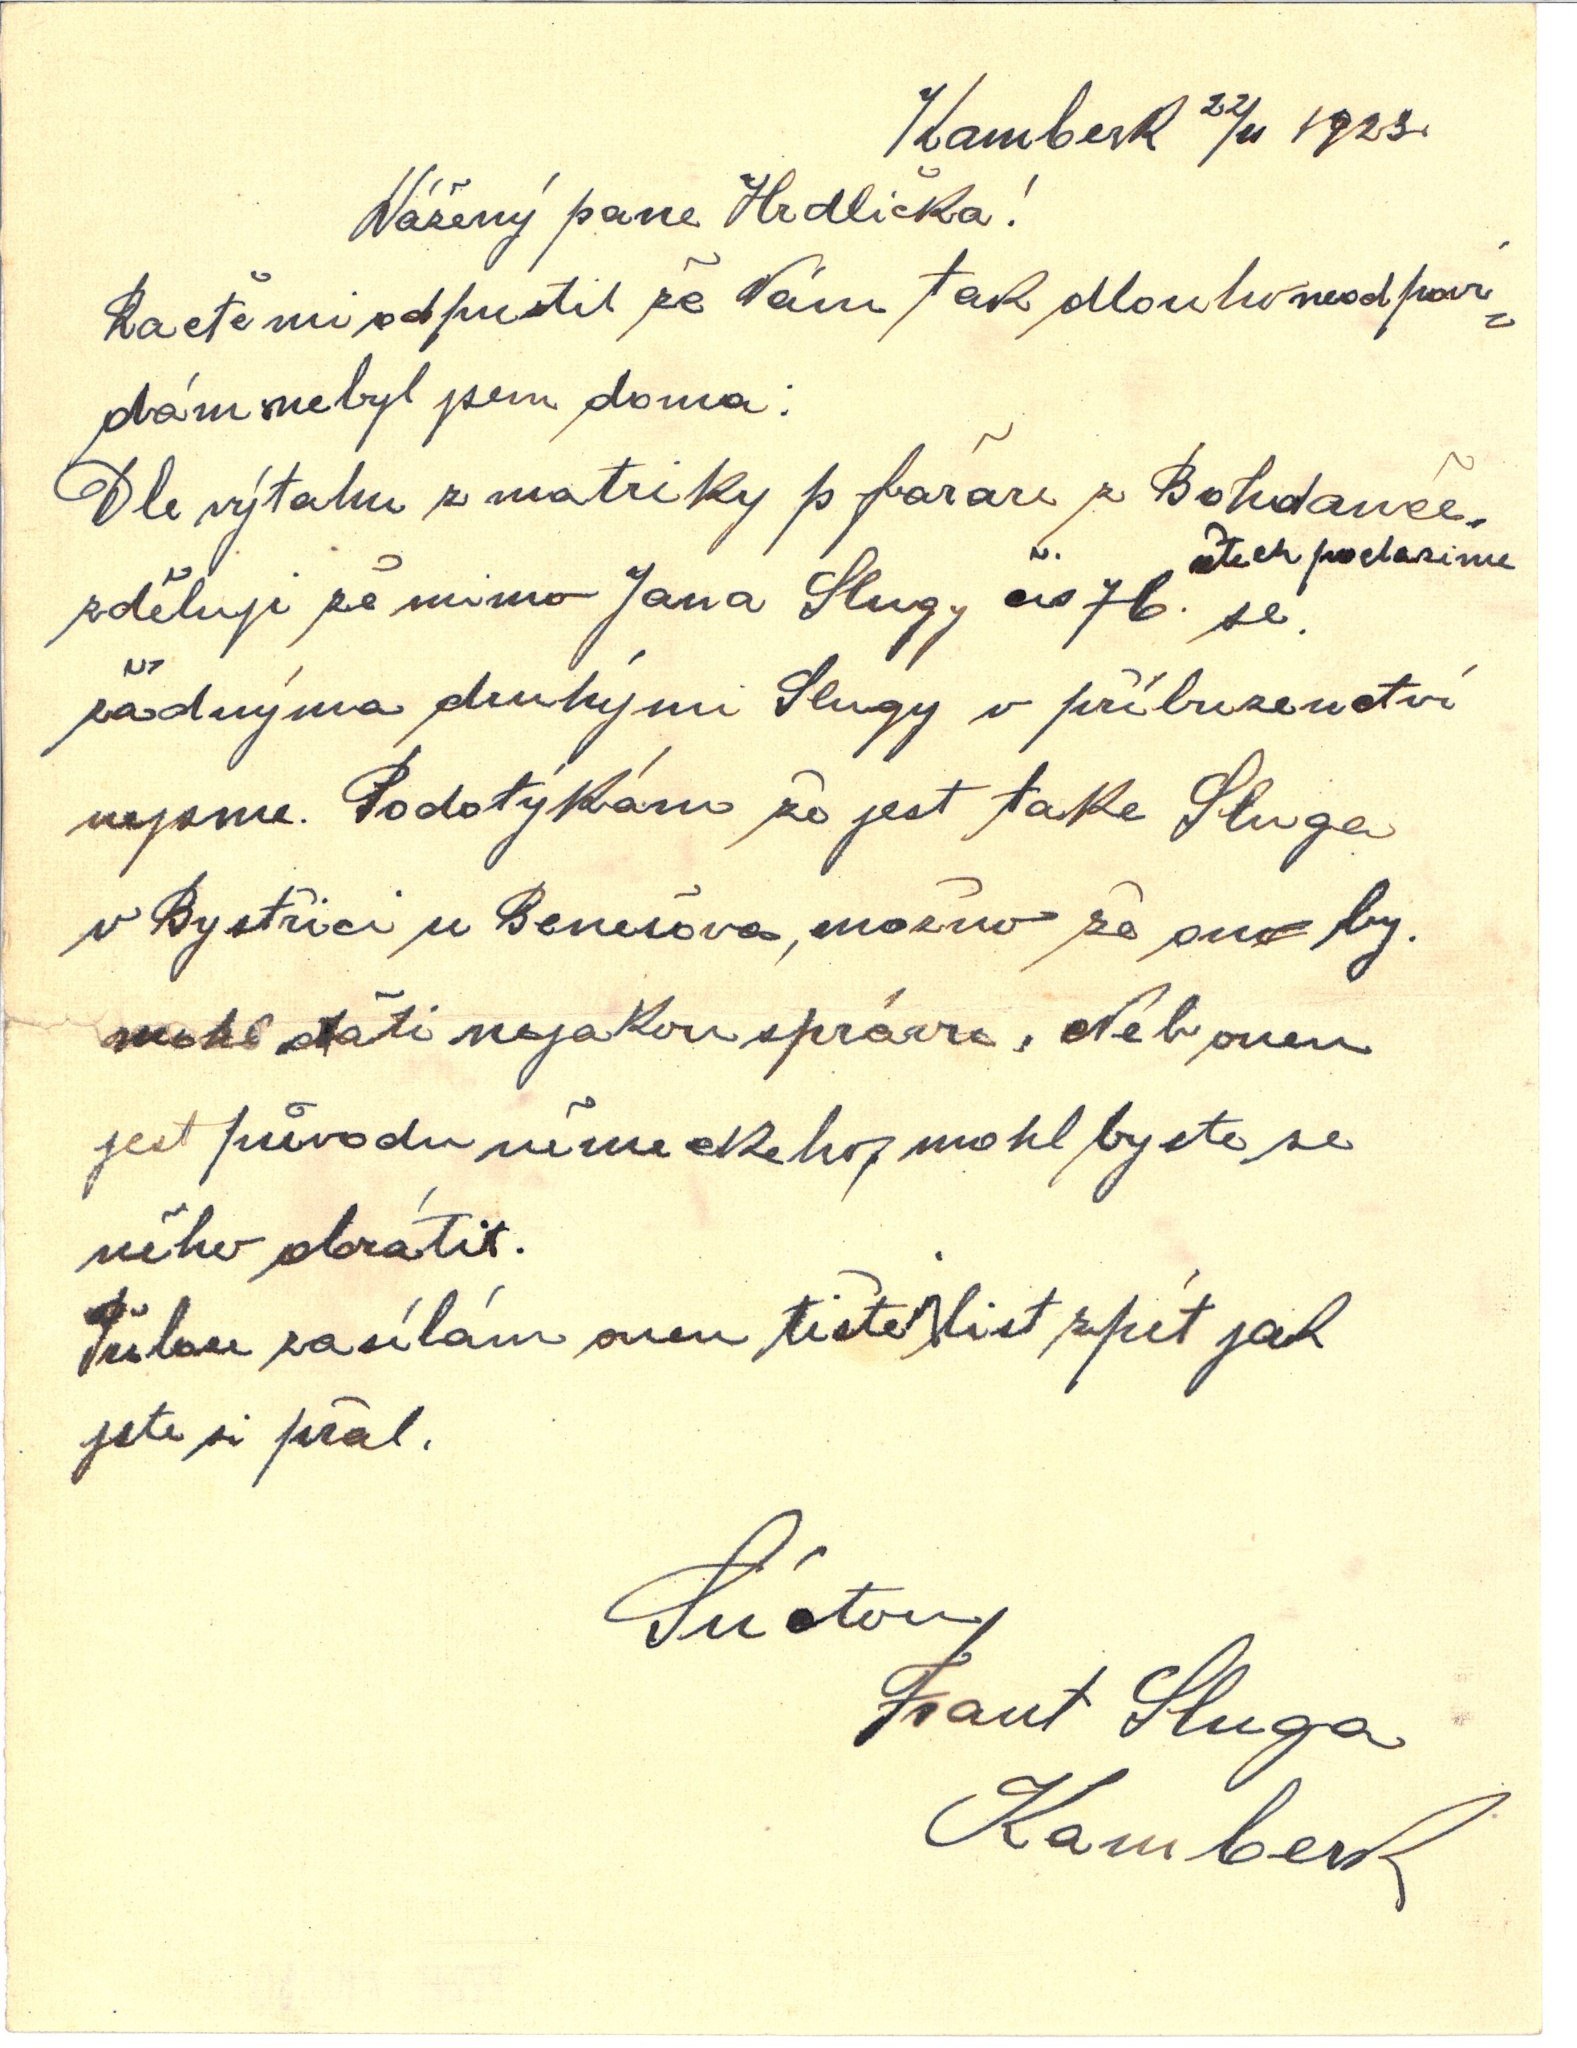 Kamberk 22/II 1923.
Vážený pane Hrdlička!
Račtě mi odpustit že Vám tak dlouho neodpoví-
dám nebyl jsem doma.
Dle výtahu z matriky p faráře z Bohdanče.
zděluji že mimo Jana Slugy čís 76. se.
žádnýma druhými Slugy v příbuzenství
nejsme. Podotýkám že jest take Sluga
v Bystřici u Benešova, možno že on by.
mohl dáti nejakou správu. Neb onen
jest původu německeho, mohl byste se
něho obrátit.
zasílám onen list zpět jak
jste si přál.
Súctou
Frant Sluga
Kamberk